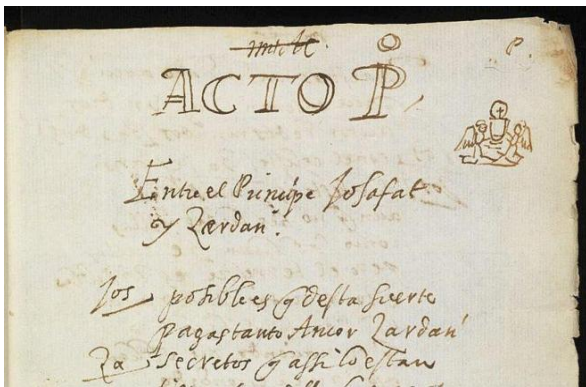 ACTO P.º
Entre el Principe Josafat
y Zardan.
Jos posible es q desta suerte
pagas tanto Amor Zardan
Za secretos q assi lo estan